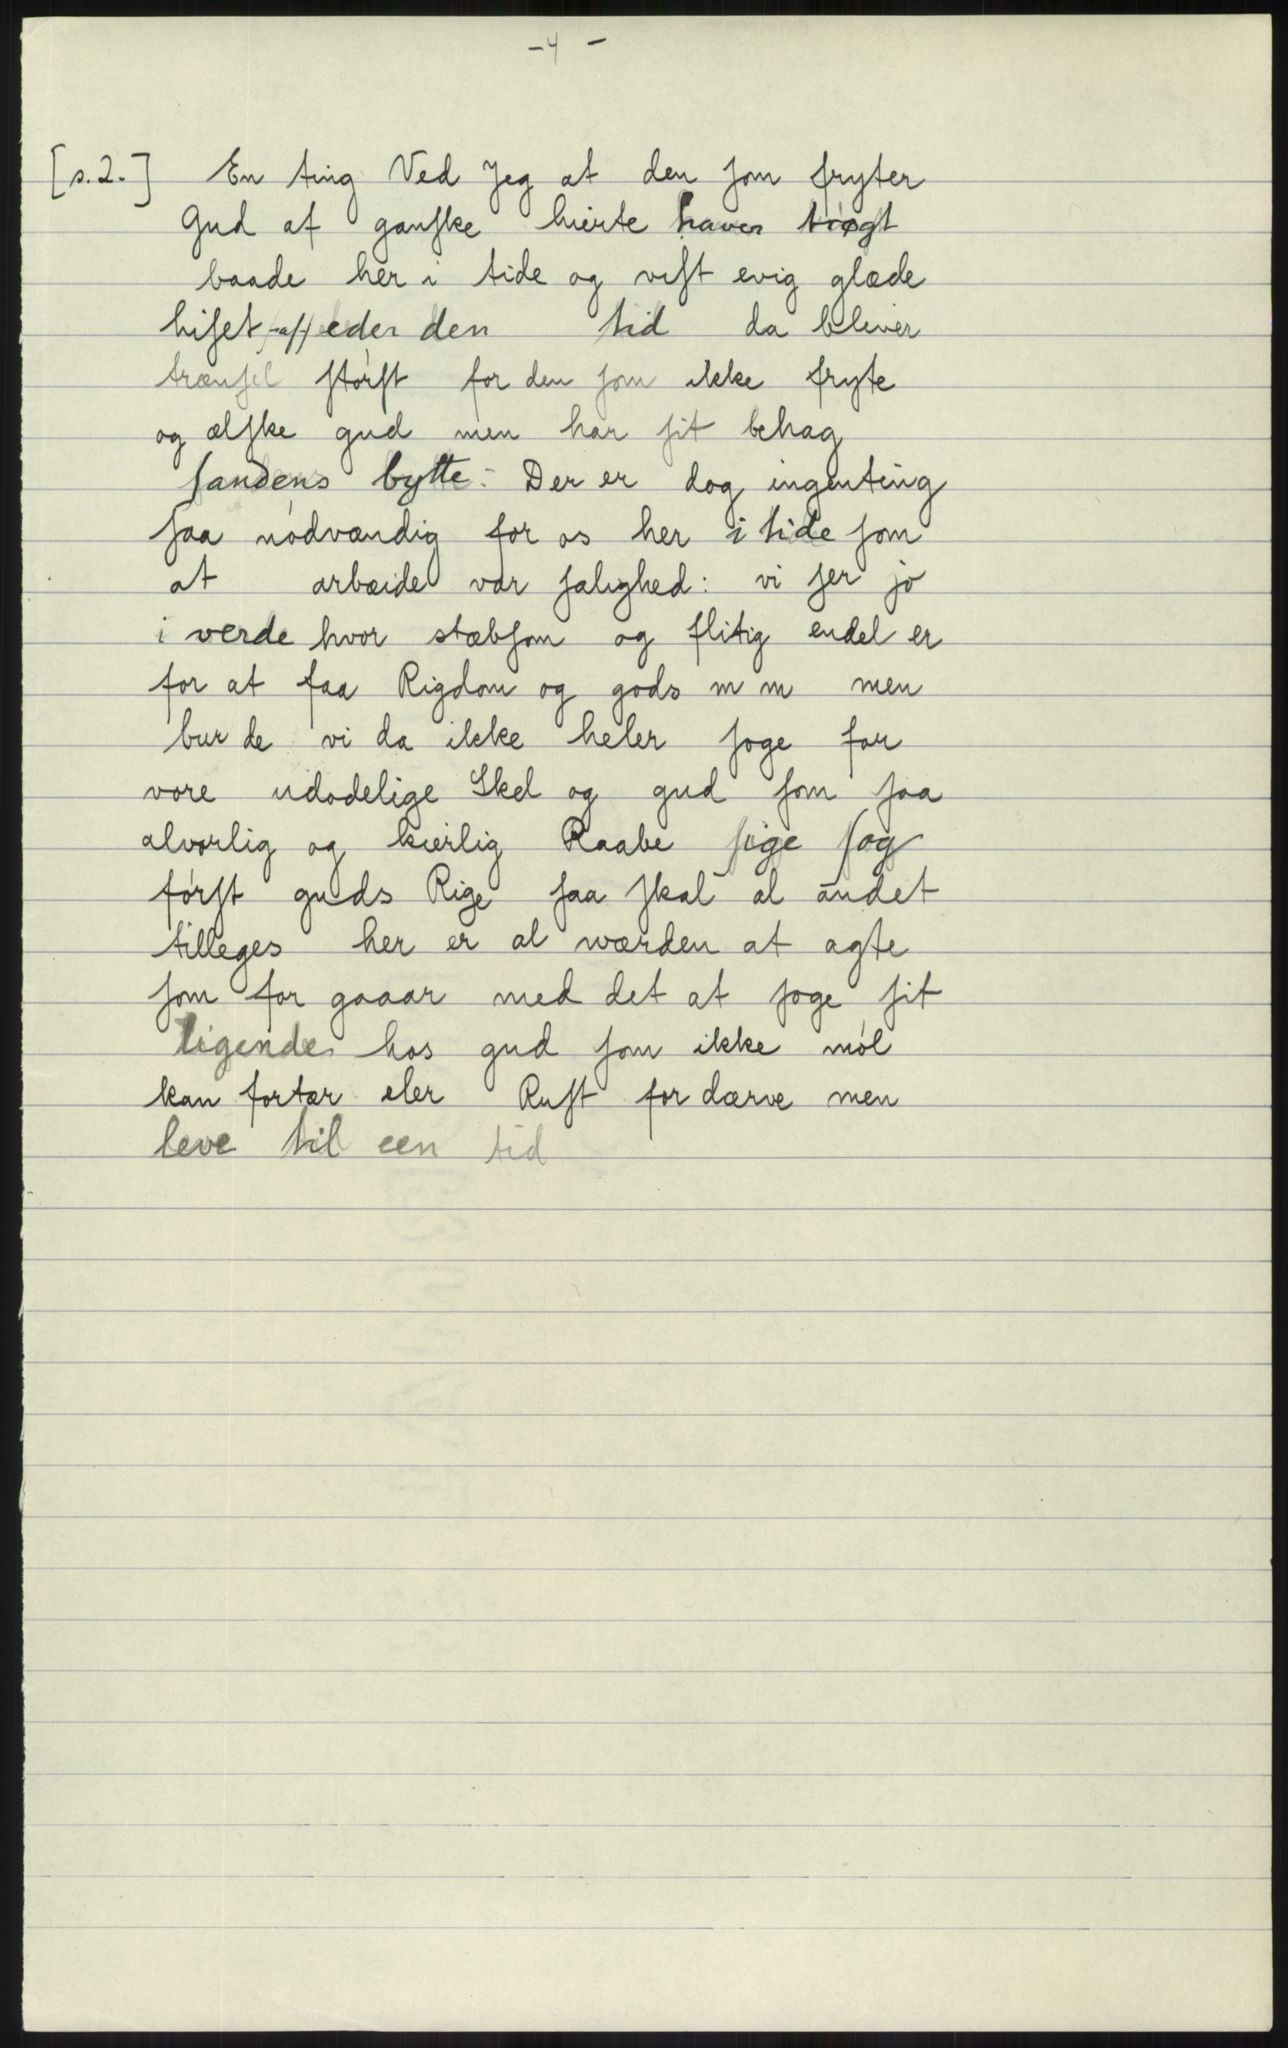 -4-
[s.2.] En ting Ved Jeg at den som fryter
Gud af ganske hierte haver trøgt
baade her i tide og vist evig glæde
hiset eder den tid da bliver
trænsel størst for den som ikke fryte
og ælske gud men har sit behag
sandens bytte: Der er dog ingenting
saa nødvændig for os her i tide som
at arbæide vor salighed: vi ser jo
i verde hvor stæbsom og flitig endel er
for at faa Rigdom og gods m m men
bur de vi da ikke heler søge for
vore udødelige Skel og gud som saa
alvorlig og kierlig Raabe sige søg
først guds Rige saa skal al andet
tilleges her er al wærden at agte
som for gaaar med det at søge sit
ligende hos gud som ikke møl
kan fortær eler Rust for dærve men
leve til een tid